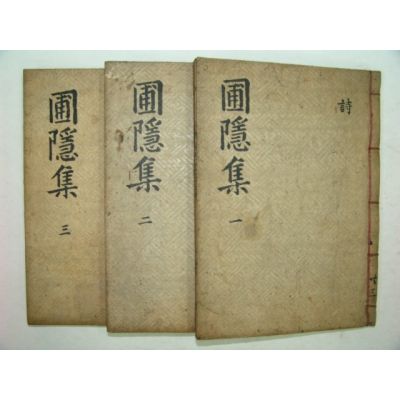 圃隱集 一
詩
圃隱集 二
圃隱集 三